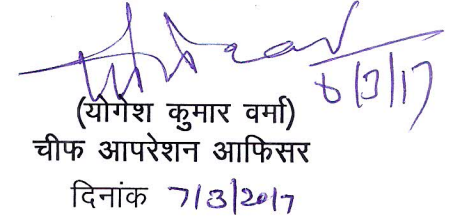 6/3/17
(योगेश कुमार वर्मा)
चीफ आपरेशन आफिसर
दिनांक 7/3/2017